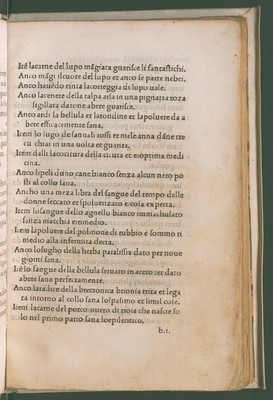 Itē lacarne del lupo māgiara guarisce li fantastichi.
Anco māgi ilcuore del lupo et anco se parte nebei.
Anco hauēdo cinta lacorreggia di lupo uale.
Anco lacenere della talpa arsa in una pignatta roza
sigillata datone abere guarisce.
Anco ardi la bellula et larondine et lapoluere da a
bere efficacemente sana.
Item lo sugo de sannali rossi et mele anna dāne tre
cuchiai in una uolta et guarira.
Item dalli lacocitura della ciruta et e optima medi
cina.
Anco lipeli duno cane bianco senza alcun nero po
sti al collo sana.
Ancho una meza libra del sangue del tempo delle
donne seccato et spoluerizato e cosa experta.
Item losangue dello agnello bianco immachulato
senza macchia emmedio.
Item lapoluere del polmone di rubbio e sommo ri
medio alla infermita decta.
Anco losugho della herba paralisis dato per noue
giorni sana.
Itē lo sangue della bellula seruato in aceto et dato
abere sana perfectamente.
Anco laradice della brectonica brionia trita et lega
ta intorno al collo sana lospasimo et simil cose.
Item lacarne del porco ouero di troia che nasce so
lo nel primo parto sana loepilentico.
b.i.